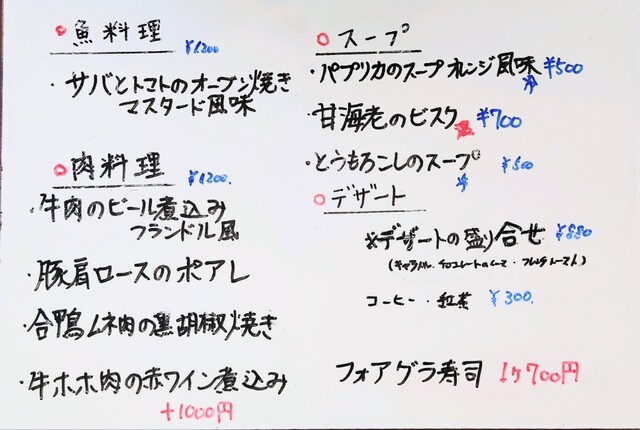 魚料理 ¥1200
・サバとトマトのオーブン焼き
マスタード風味
肉料理 ¥1200.
・牛肉のビール煮込み
フランドル風
・豚肩ロースのポアレ
・合鴨ムネ肉の黒胡椒焼き
・牛ホホ肉の赤ワイン煮込み
+1000円
スープ
・パプリカのスープ オレンジ風味 ¥500
冷
・甘海老のビスク 温 ¥700
・とうもろこしのスープ ¥500
冷
デザート
※デザートの盛り合せ ¥880
コーヒー・紅茶 ¥300.
フォアグラ寿司 1ヶ700円